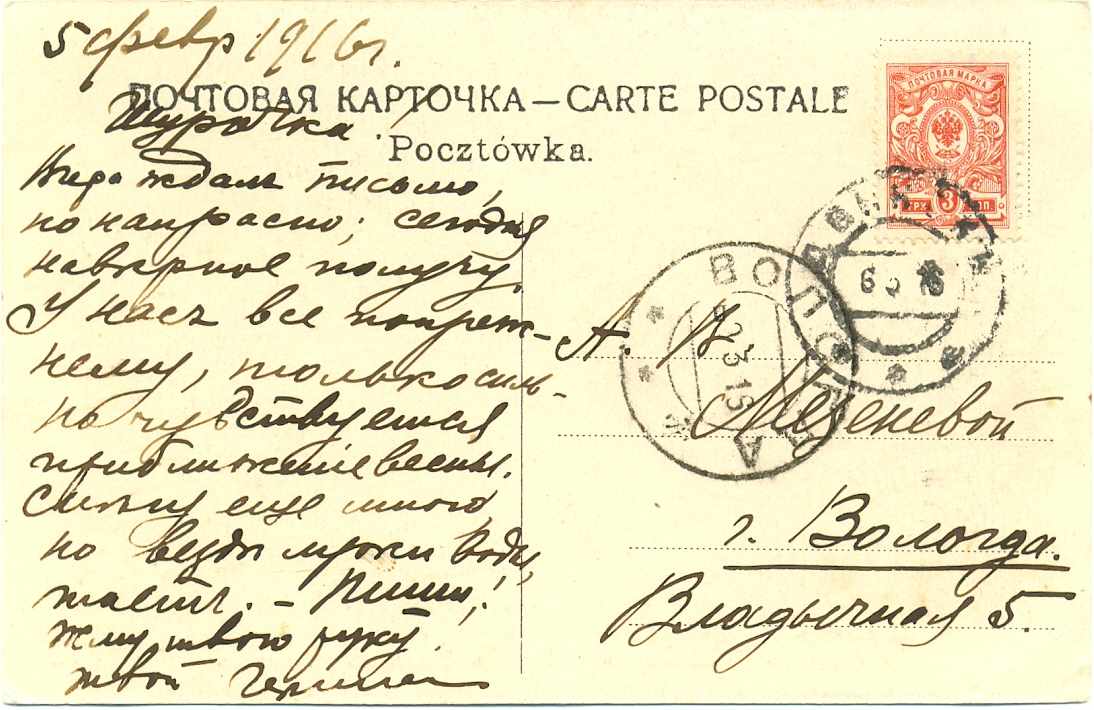 5 февр 1916 г.
ПОЧТОВАЯ КАРТОЧКА — CARTE POSTALE
Pocztówka.
Шурочка!
Вчера ждалъ письмо,
но напрасно; сегодня
навѣрное получу.
У насъ все попреж-
нему, только силь-
но чувствуется
приближеніе весны.
Снѣгу еще много,
но вездѣ лужи воды,
таетъ. – Пиши!
Жму твою руку.
твой
ПОЧТОВАЯ МАРКА
3
КОП.
6 2 16
ВОЛОГДА
2 3 16
А. В.
Мезеневой
г. Вологда.
Владычная 5.